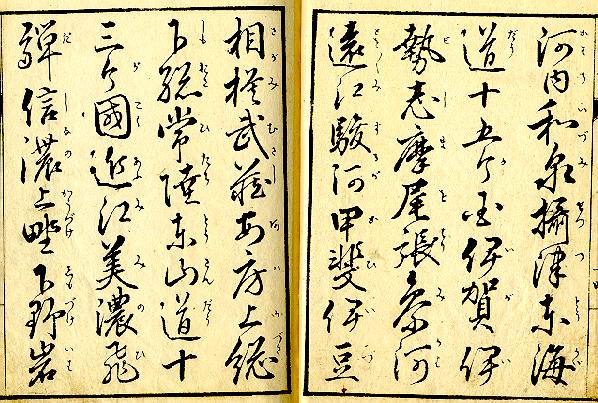 河内和泉攝津東海
道十五ケ国伊賀伊
勢志摩尾張参河
遠江駿河甲斐伊豆
相模武蔵安房上総
下総常陸東山道十
三ケ國近江美濃飛
騨信濃上野下野岩